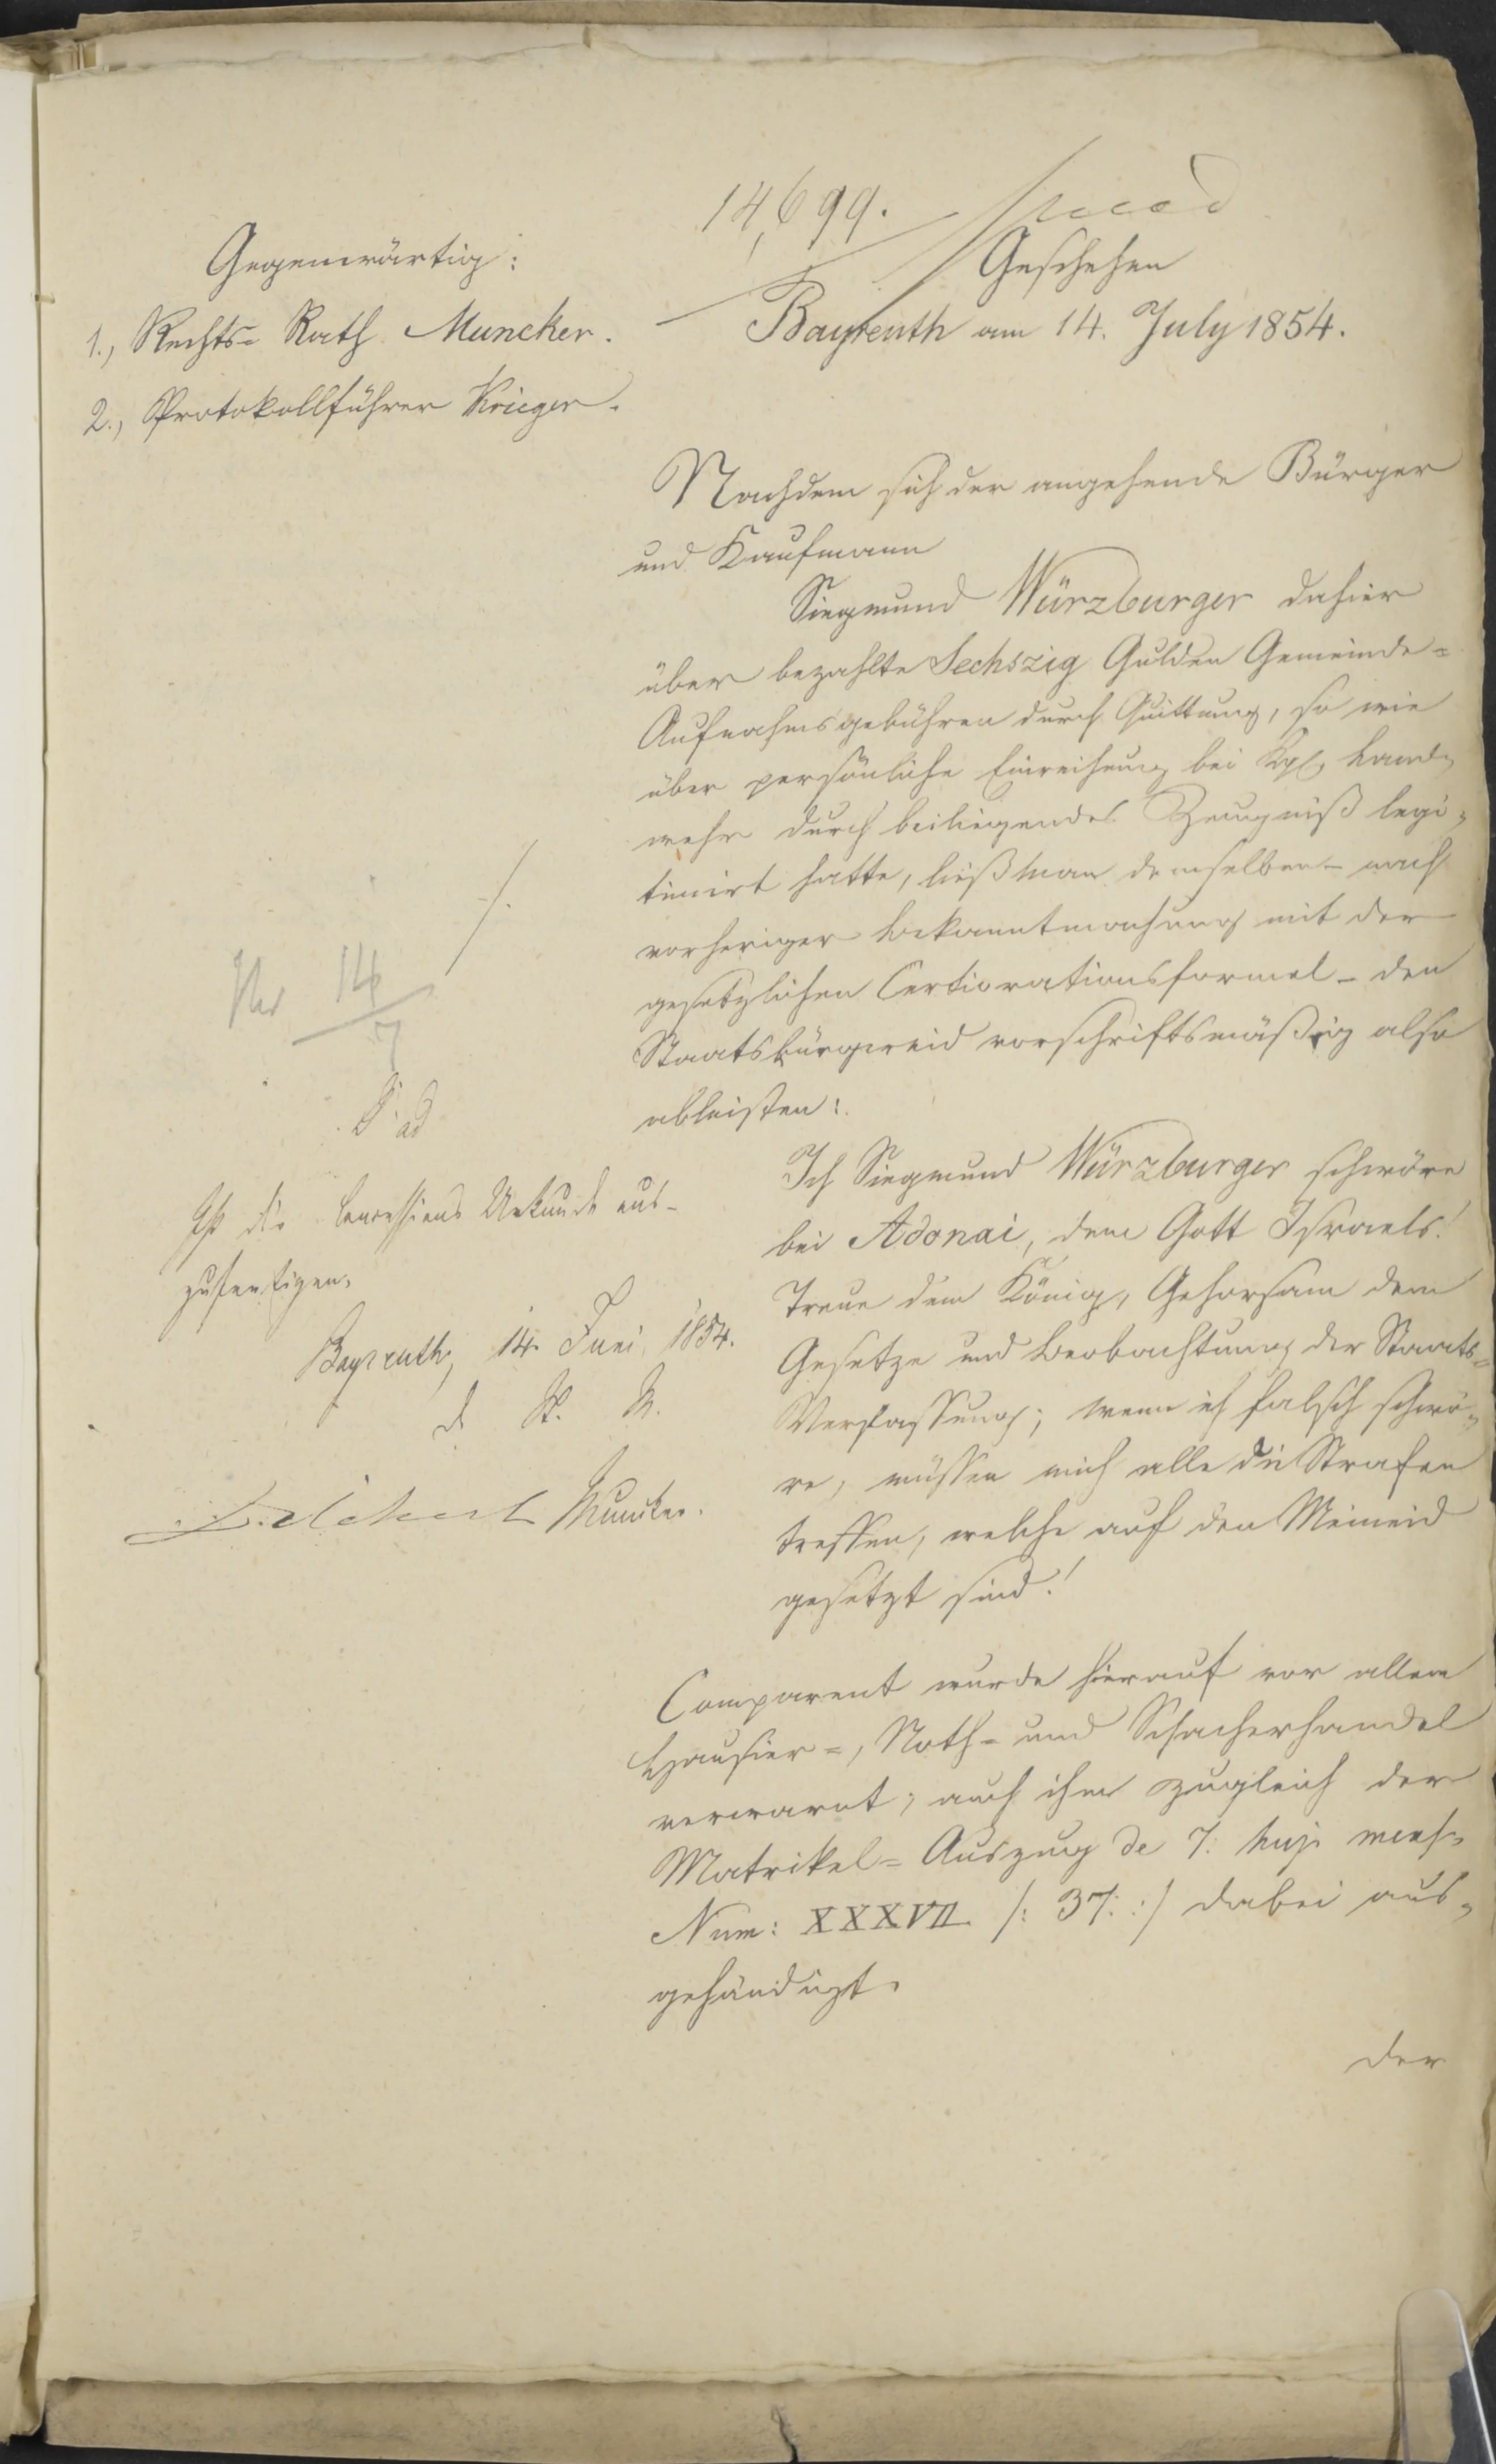 14,699.
Gegenwärtig:
1., Rechts=Rath Muncker.
2., Protokollführer Krieger.
Geschehen
Bayreuth am 14. July 1854.
Nachdem sich der angehende Bürger
und Kaufmann
Siegmund Würzburger dahier
über bezahlte Sechszig Gulden Gemeinde=
Aufnahmsgebühren durch Quittung, so wie
über persönliche Einreihung bei Kgl. Land=
wehr durch beiliegendes Zeugniß legi=
timirt hatte, ließ man demselben – nach
vorheriger Bekanntmachung mit der
gesetzlichen Certiorationsformel – den
Staatsbürgereid vorschriftsmäßig also
ableisten:
Ich Siegmund Würzburger schwöre
bei Adonai, dem Gott Israels!
Treue dem König, Gehorsam dem
Gesetze und Beobachtung der Staats=
Verfassung; wenn ich falsch schwö=
re, müssen mich alle die Strafen
treffen, welche auf den Meineid
gesetzt sind!
Comparent wurde hierauf vor allem
Hausier=, Noth= und Schacherhandel
verwarnt; auch ihm zugleich der
Matrikel=Auszug de 7. huj. mens.
Num: XXXVII /: 37. :/ dabei aus=
gehändigt.
der
14
7
Ist die Concessions Urkunde aus-
zufertigen.
Bayreuth, 14. Juni 1854.
d. St. M.
Muncker.